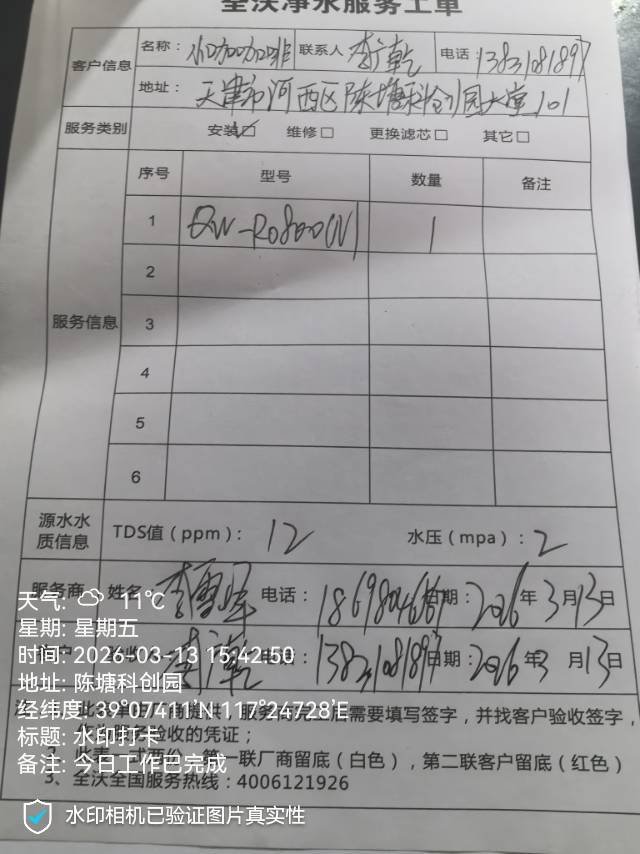 全沃净水服务工单
客户信息
名称： 联系人 李广乾 电话：13831081897
地址： 天津市河西区陈塘科创园大堂101
服务类别 安装☑ 维修□ 更换滤芯□ 其它□
服务信息
序号 型号 数量 备注
1 QW-RO800(N) 1
2
3
4
5
6
源水水质信息
TDS值（ppm）： 12 水压（mpa）：2
服务商 姓名 电话： 日期：2026年3月13日
客户 验收 李广乾 电话：13831081897 日期：2026年3月13日
服务完 后需要填写签字，并找客户验收签字，
验收的凭证；
2、此表一式两份，第一联厂商留底（白色），第二联客户留底（红色）
3、全沃全国服务热线：4006121926
天气: 11℃
星期: 星期五
时间: 2026-03-13 15:42:50
地址: 陈塘科创园
经纬度: 39°07411'N 117°24728'E
标题: 水印打卡
备注: 今日工作已完成
水印相机已验证图片真实性